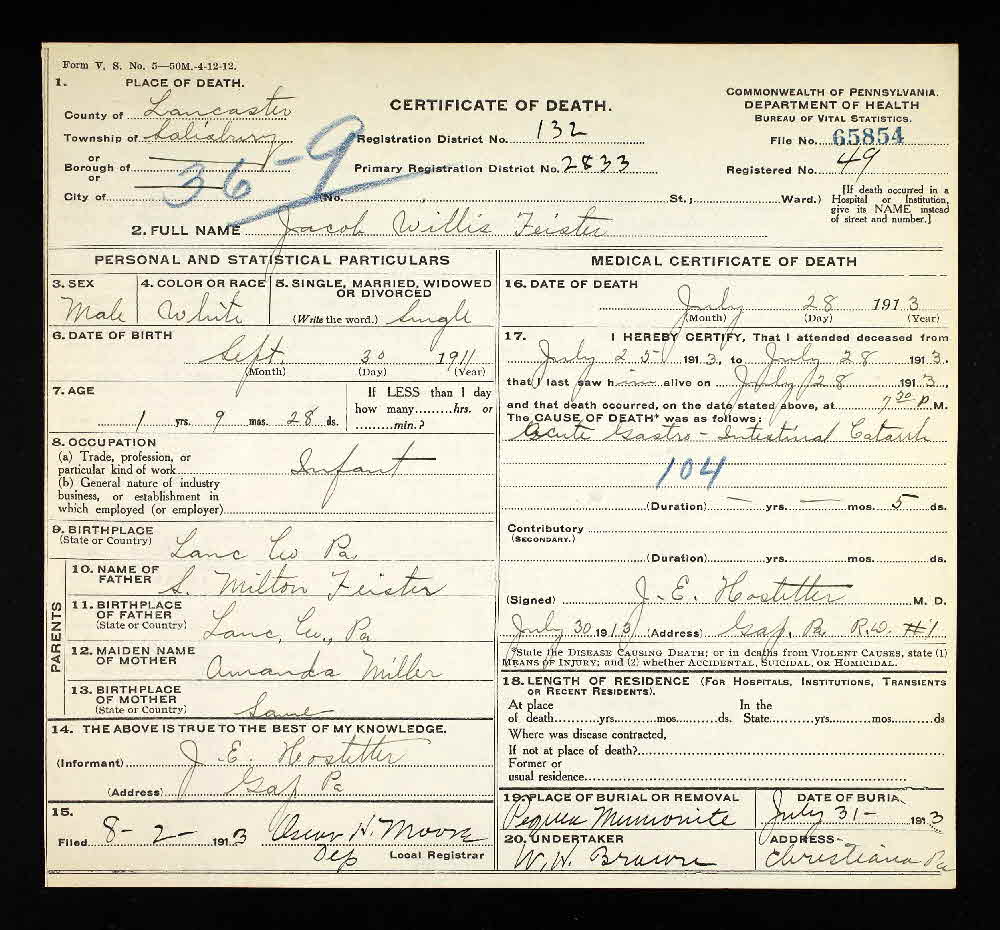 Form V. S. No. 5—50M.-4-12-12.
1. PLACE OF DEATH.
County of Lancaster
Township of Salisbury
or
Borough of
or
City of
36-9
CERTIFICATE OF DEATH.
Registration District No. 132
Primary Registration District No. 2833
(No. , St.; Ward.)
COMMONWEALTH OF PENNSYLVANIA.
DEPARTMENT OF HEALTH
BUREAU OF VITAL STATISTICS.
File No. 65854
Registered No. 49
[If death occurred in a
Hospital or Institution,
give its NAME instead
of street and number.]
2. FULL NAME Jacob Willis Feister
PERSONAL AND STATISTICAL PARTICULARS
3. SEX
Male
4. COLOR OR RACE
White
5. SINGLE, MARRIED, WIDOWED
OR DIVORCED
(Write the word.) Single
6. DATE OF BIRTH
Sept. 30 1911
(Month) (Day) (Year)
7. AGE
1 yrs. 9 mos. 28 ds.
If LESS than 1 day
how many........hrs. or
.........min.?
8. OCCUPATION
(a) Trade, profession, or
particular kind of work Infant
(b) General nature of industry
business, or establishment in
which employed (or employer)
9. BIRTHPLACE
(State or Country)
Lanc Co Pa
PARENTS
10. NAME OF
FATHER
S. Milton Feister
11. BIRTHPLACE
OF FATHER
(State or Country)
Lanc, Co., Pa
12. MAIDEN NAME
OF MOTHER
Amanda Miller
13. BIRTHPLACE
OF MOTHER
(State or Country)
Same
14. THE ABOVE IS TRUE TO THE BEST OF MY KNOWLEDGE.
(Informant) J. E. Hostetter
(Address) Gap Pa
15.
Filed 8-2- 1913 Oscar H. Moore
Dep Local Registrar
MEDICAL CERTIFICATE OF DEATH
16. DATE OF DEATH
July 28 1913
(Month) (Day) (Year)
17. I HEREBY CERTIFY, That I attended deceased from
July 25 1913, to July 28 1913,
that I last saw him alive on July 28 1913,
and that death occurred, on the date stated above, at 7 30 P.M.
The CAUSE OF DEATH* was as follows:
Acute Gastro-Intestinal Catarrh
104
(Duration) — yrs. — mos. 5 ds.
Contributory
(SECONDARY.)
(Duration) yrs. mos. ds.
(Signed) J. E. Hostetter M. D.
July 30 1913 (Address) Gap, Pa. R.D. #1
*State the DISEASE CAUSING DEATH; or in deaths from VIOLENT CAUSES, state (1)
MEANS OF INJURY; and (2) whether ACCIDENTAL, SUICIDAL, OR HOMICIDAL.
18. LENGTH OF RESIDENCE (FOR HOSPITALS, INSTITUTIONS, TRANSIENTS
OR RECENT RESIDENTS).
At place In the
of death...........yrs...........mos...........ds. State...........yrs...........mos...........ds
Where was disease contracted,
If not at place of death?
Former or
usual residence
19. PLACE OF BURIAL OR REMOVAL
Pequea Mennonite
DATE OF BURIAL
July 31- 1913
20. UNDERTAKER
W. W. Brown
ADDRESS
Christiana Pa